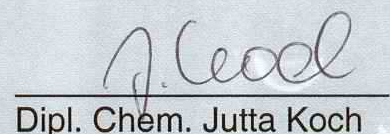 J. Koch
Dipl. Chem. Jutta Koch